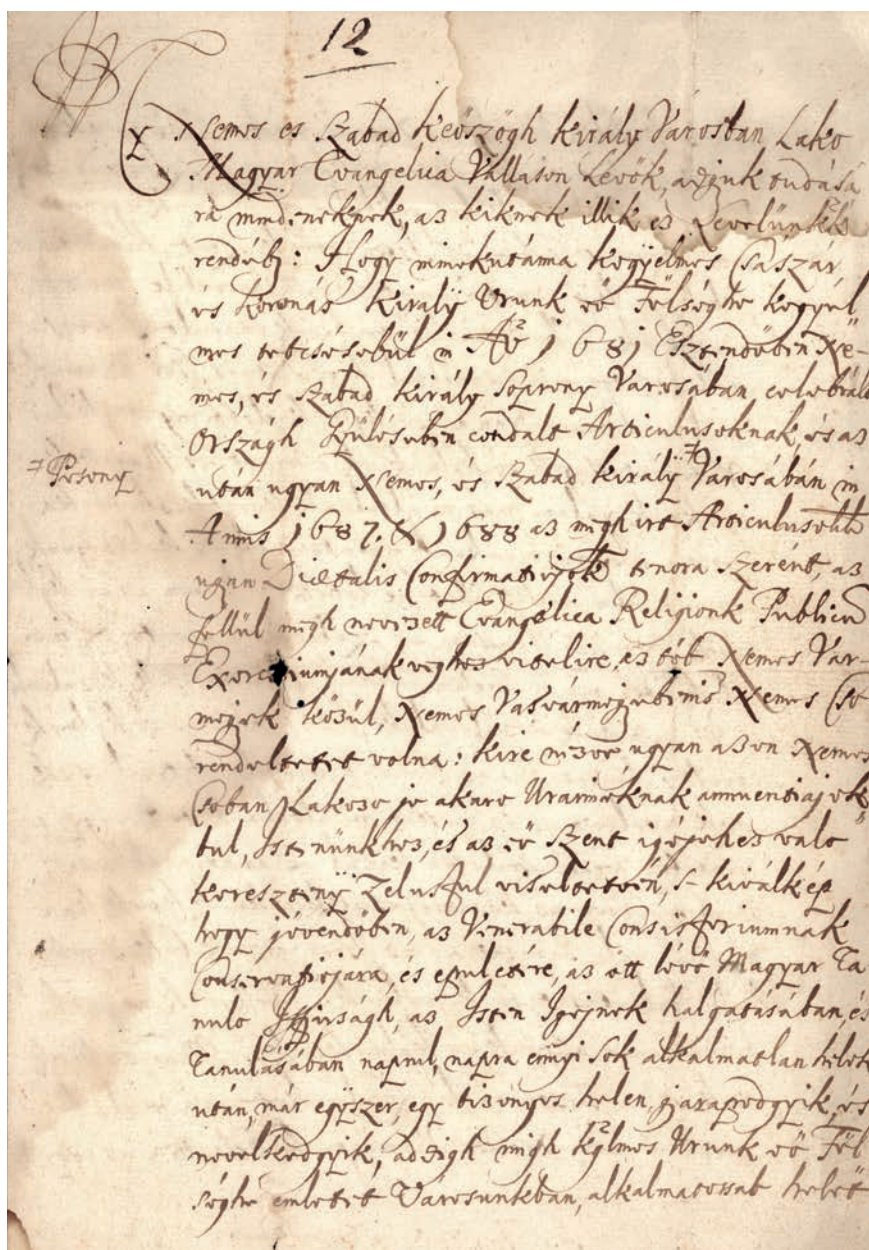 12
Nemes es Szabad Keőszögh Király Városban Lako
Magyar Evangelica Valláson Levők, adgjuk tudása
ra mindeneknek, az kiknek illik ez Levelünknek
rendib: Hogy minekutánna kegyelmes Császár
és koronás Királÿ Urunk eő Fölséghe kegyel
mes tetcsésébül in Aō 1681 Esztendőben Ne-
mes, és Szabad Király Soprony Városában celebrált
Országh Gyülésében condalt Articulusoknak, és az
után ugyan Nemes, és Szabad Királÿ Városában in
Posony
Annis 1687. & 1688 az megh irt Articulusok
ugyan Diætalis Confirmatiojok tenora szerént, az
föllül megh nevezett Evangelica Religionk Publicū
Exercitiumjának véghez vitelire, az töb Nemes Vár-
megjék közül, Nemes Vasvármegjébennis Nemes Cso
rendeltetet volna: kire nézve, ugyan azon Nemes
Csoban Lakozo jo akaro Uraiméknak annuentiajok
bul, Istenünkhez, és az eő Szent igéjéhez valo
keresztenÿ Zelustul viseltetvén, s- kiválkép
hogy jövendőben, az Venerabile Consistoriumnak
Conservatiojára, és epületére, az ott lévő Magyar Ta
nulo Iffiuságh, az Isten Igéjnek halgatásában, és
Tanulásában naprul, napra ennyi sok alkalmatlan helek
után, már egÿszer, egy bizonyos helen gyarapodgyik, és
nevelkedgyik, addigh migh kglmes Urunk eő Föl
séghe emletet Városunkban, alkalmatossab helet